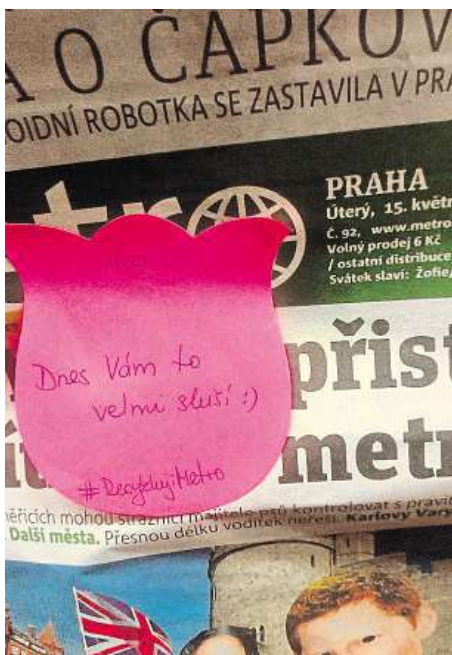 A O ČAPKOV
OIDNÍ ROBOTKA SE ZASTAVILA V PRA
tro
PRAHA
Úterý, 15. květn
Č. 92, www.metro
Volný prodej 6 Kč
/ ostatní distribuce
Svátek slaví: Žofie/
Dnes Vám to
velmi sluší :)
#RecyklujiMetro
přist
metr
ěřicích mohou strážníci majitele psů kontrolovat s pravít
Další města. Přesnou délku vodítek neřeší. Karlovy Vary